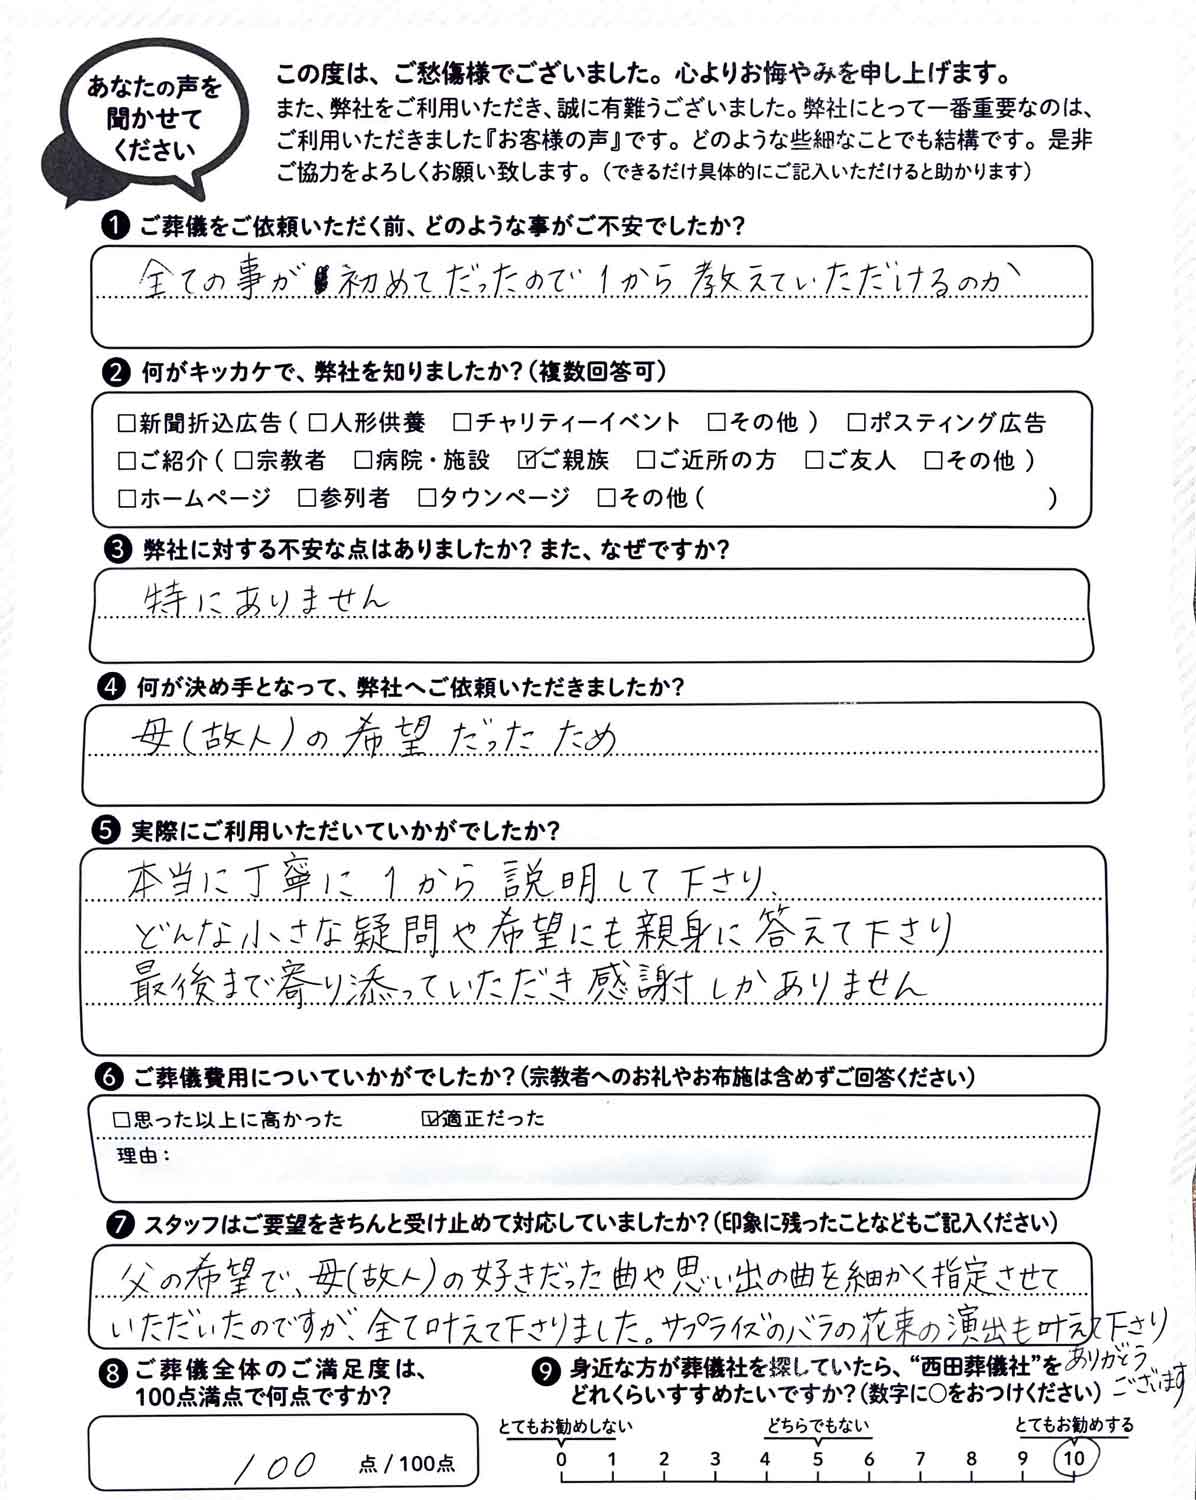 あなたの声を
聞かせて
ください
この度は、ご愁傷様でございました。心よりお悔やみを申し上げます。
また、弊社をご利用いただき、誠に有難うございました。弊社にとって一番重要なのは、
ご利用いただきました『お客様の声』です。どのような些細なことでも結構です。是非
ご協力をよろしくお願い致します。（できるだけ具体的にご記入いただけると助かります）
❶ ご葬儀をご依頼いただく前、どのような事がご不安でしたか？
全ての事が 初めてだったので1から教えていただけるのか
❷ 何がキッカケで、弊社を知りましたか？（複数回答可）
□新聞折込広告（ □人形供養 □チャリティーイベント □その他 ） □ポスティング広告
□ご紹介（ □宗教者 □病院・施設 ☑ご親族 □ご近所の方 □ご友人 □その他 ）
□ホームページ □参列者 □タウンページ □その他（ ）
❸ 弊社に対する不安な点はありましたか？また、なぜですか？
特にありません
❹ 何が決め手となって、弊社へご依頼いただきましたか？
母（故人）の希望だったため
❺ 実際にご利用いただいていかがでしたか？
本当に丁寧に1から説明して下さり、
どんな小さな疑問や希望にも親身に答えて下さり
最後まで寄り添っていただき感謝しかありません
❻ ご葬儀費用についていかがでしたか？（宗教者へのお礼やお布施は含めずご回答ください）
□思った以上に高かった ☑適正だった
理由：
❼ スタッフはご要望をきちんと受け止めて対応していましたか？（印象に残ったことなどもご記入ください）
父の希望で、母（故人）の好きだった曲や思い出の曲を細かく指定させて
いただいたのですが、全て叶えて下さりました。サプライズのバラの花束の演出も叶えて下さり
ありがとう
ございます
❽ ご葬儀全体のご満足度は、
100点満点で何点ですか？
100 点 / 100点
❾ 身近な方が葬儀社を探していたら、“西田葬儀社”を
どれくらいすすめたいですか？（数字に○をおつけください）
とてもお勧めしない どちらでもない とてもお勧めする
0 1 2 3 4 5 6 7 8 9 10